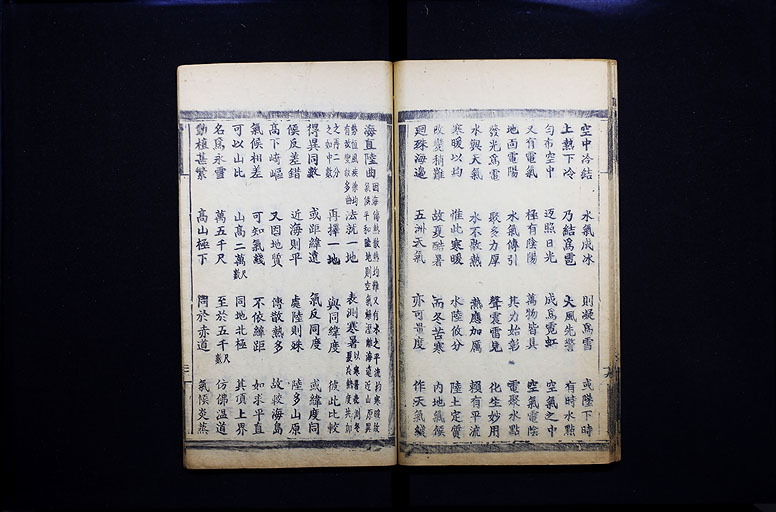 空中冷結　水氣成冰　則凝爲雪　或墜下時
上熱下冷　乃結爲雹　大風先警　有時水點
勻布空中　迎照日光　成爲霓虹　空氣之中
又有電氣　極有陰陽　萬物皆具　空氣電陰
地面電陽　水氣傳引　其力始彰　電聚水點
發光爲電　聚多力厚　聲震雷見　化生妙用
水與天氣　水不散熱　熱應加厲　賴有平流
寒暖以均　惟此寒暖　水陸攸分　陸土定質
改變稍難　故夏酷暑　而冬苦寒　內地氣候
迥殊海邊　五洲天氣　亦可量度　作天氣綫
海直陸曲
法就一地　表測寒暑
再擇一地　與同緯度　彼此比較
得異同數　或距緯遠　氣反同度　或緯度同
候反差錯　近海則平　處陸則殊　陸多山原
高下崎嶇　又因地質　傳散熱多　故較海島
氣候相差　可知氣綫　不依緯距　如求平直
可以山比　山高二萬尺數　同地北極　其頂上界
名爲永雪　萬五千尺　至於五千尺數　仿佛溫道
動植甚繁　高山極下　同於赤道　氣候炎蒸